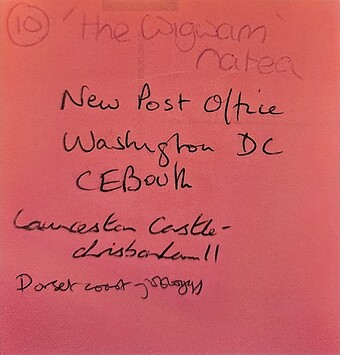 10 'the wigwam'
natea
New Post Office
Washington DC
CEBouth
Launceston Castle -
chrisbanham11
Dorset coast